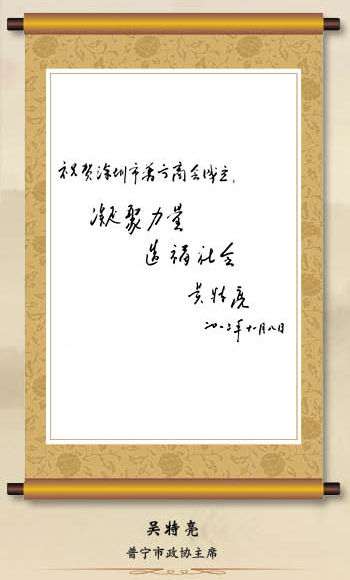 祝贺深圳市普宁商会成立，
凝聚力量
造福社会
吴特亮
二〇一二年十一月八日
吴特亮
普宁市政协主席